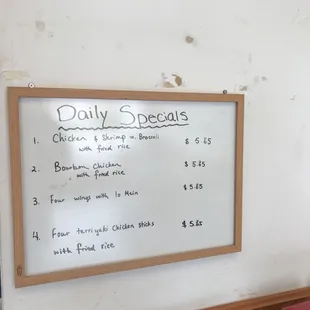 Daily Specials
1. Chicken & Shrimp w. Broccoli $ 5.65
with fried rice
2. Bourbon Chicken $ 5.65
with fried rice
3. Four wings with lo Mein $ 5.65
4. Four terriyaki Chicken sticks $ 5.65
with fried rice